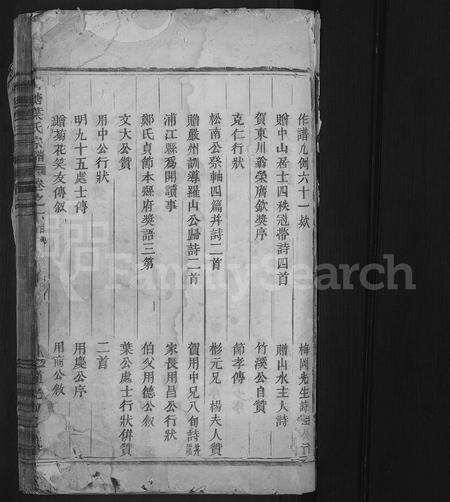 作譜凡例六十一欵
梅岡先生詩
贈中山居士四秩冠帶詩四首
贈山水主人詩
賀東川翁榮膺欽獎序
竹溪公自贊
克仁行狀
節孝傳
松南公祭軸四篇并詩二首
彬元兄 楊夫人贊
贈嚴州訓導羅山公歸詩二首
賀用中兄八旬詩
浦江縣為開讀事
家長用昌公行狀
鄭氏貞節本縣府獎語三第
伯父用德公敘
文大公贊
葉公處士行狀併贊
用中公行狀
二首
明九十五處士傳
用慶公序
贈菊花笑友傳敘
用南公敘
葉氏宗譜
卷之一
FamilySearch